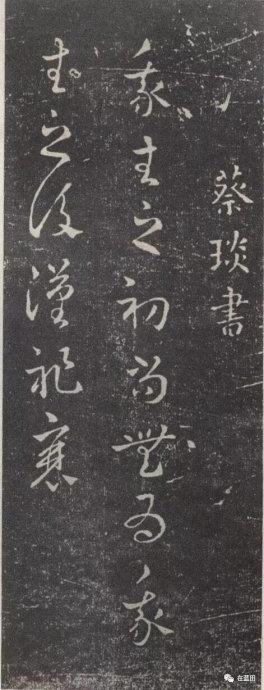 蔡琰書
我生之初尚無為我
生之後漢祚衰
在蓝田